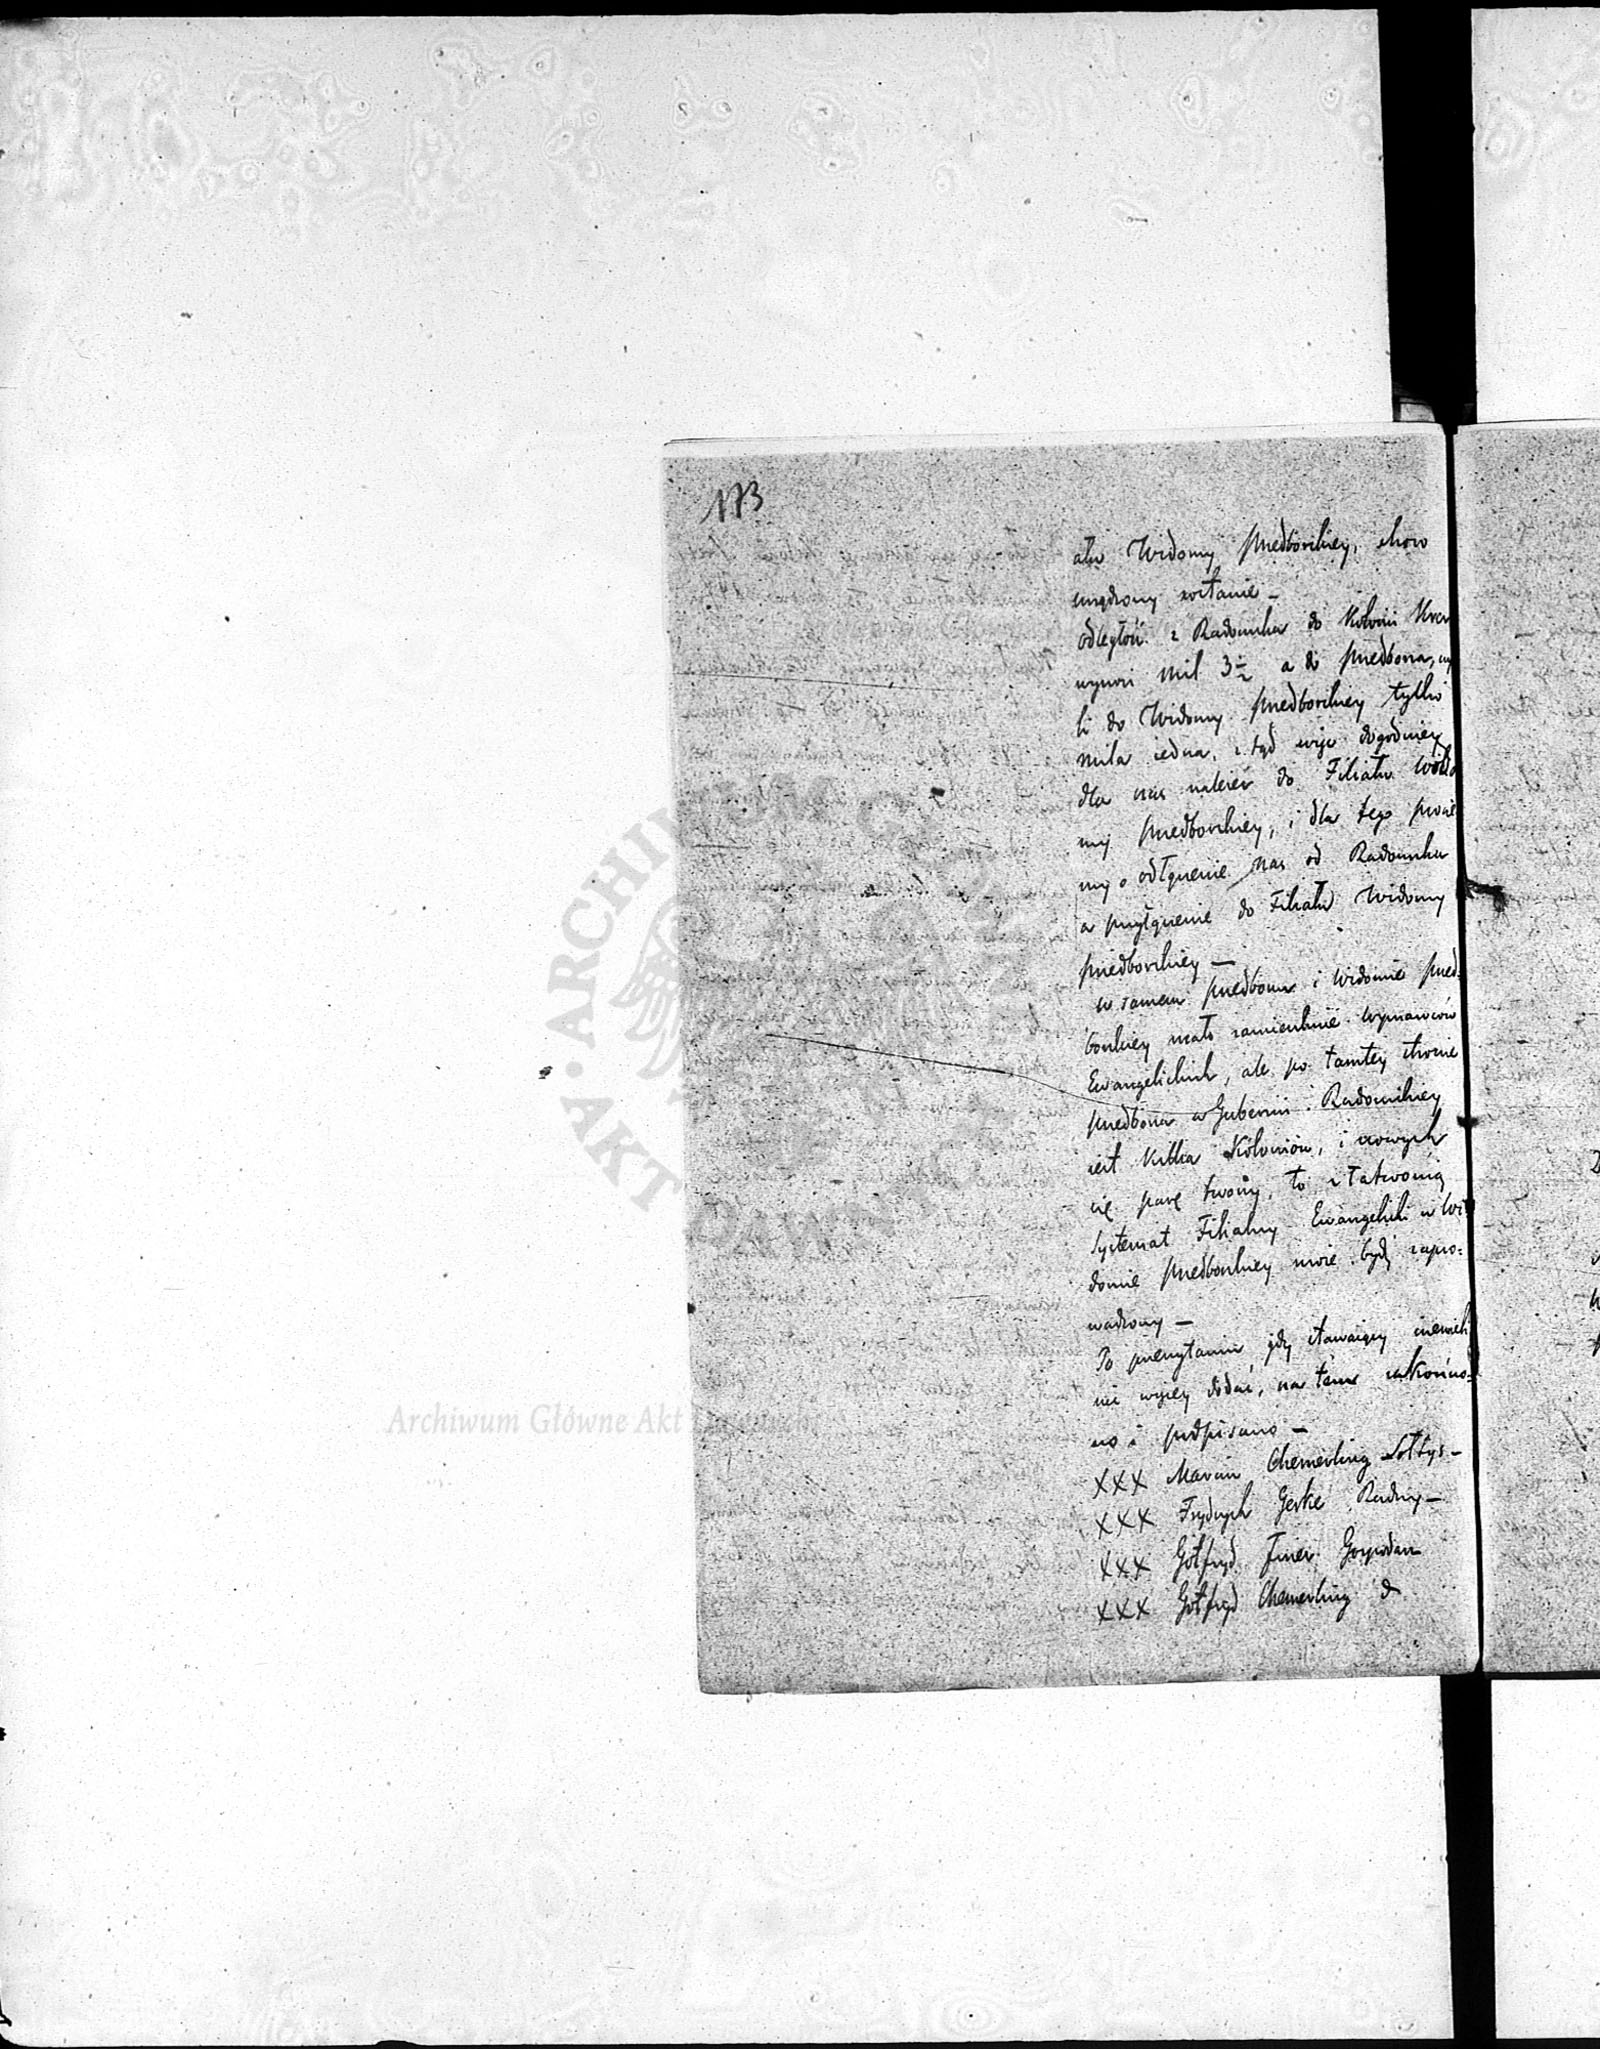 173
ału Widomy Przedborskiey, skoro
urządzony zostanie —
odległość z Radomska do Kolonii
wynosi mil 3½ a do Przedborza,
li do Widomy Przedborskiey tylko
mila iedna, z tąd więc dogodniey
dla nas należeć do Filiału Wido
my Przedborskiey, i dla tego prosie
my o odłączenie nas od Radomska
a przyłączenie do Filiału Widomy
Przedborskiey —
w samem Przedborzu i Widomie Przed=
borskiey mało zamieszkuie Wyznawców
Ewangelickich, ale po tamtey stronie
Przedborza w Gubernii Radomskiey
iest kilka Koloniów, i nowych
się parę tworzy, to z łatwością
Systemat Filialny Ewangelicki w Wi
domie Przedborskiey może bydź zapro=
wadzony —
Po przeczytaniu, gdy stawaiący niemieli
nic więcey dodać, na tém zakończo=
no i podpisano —
XXX Marcin Chemerling Sołtys —
XXX Frydrych Gerke Radny —
XXX Gotfryd Gospodarz
XXX Gotfryd Chemerling d
ARCHIWUM GŁÓWNE AKT DAWNYCH
Archiwum Główne Akt Dawnych